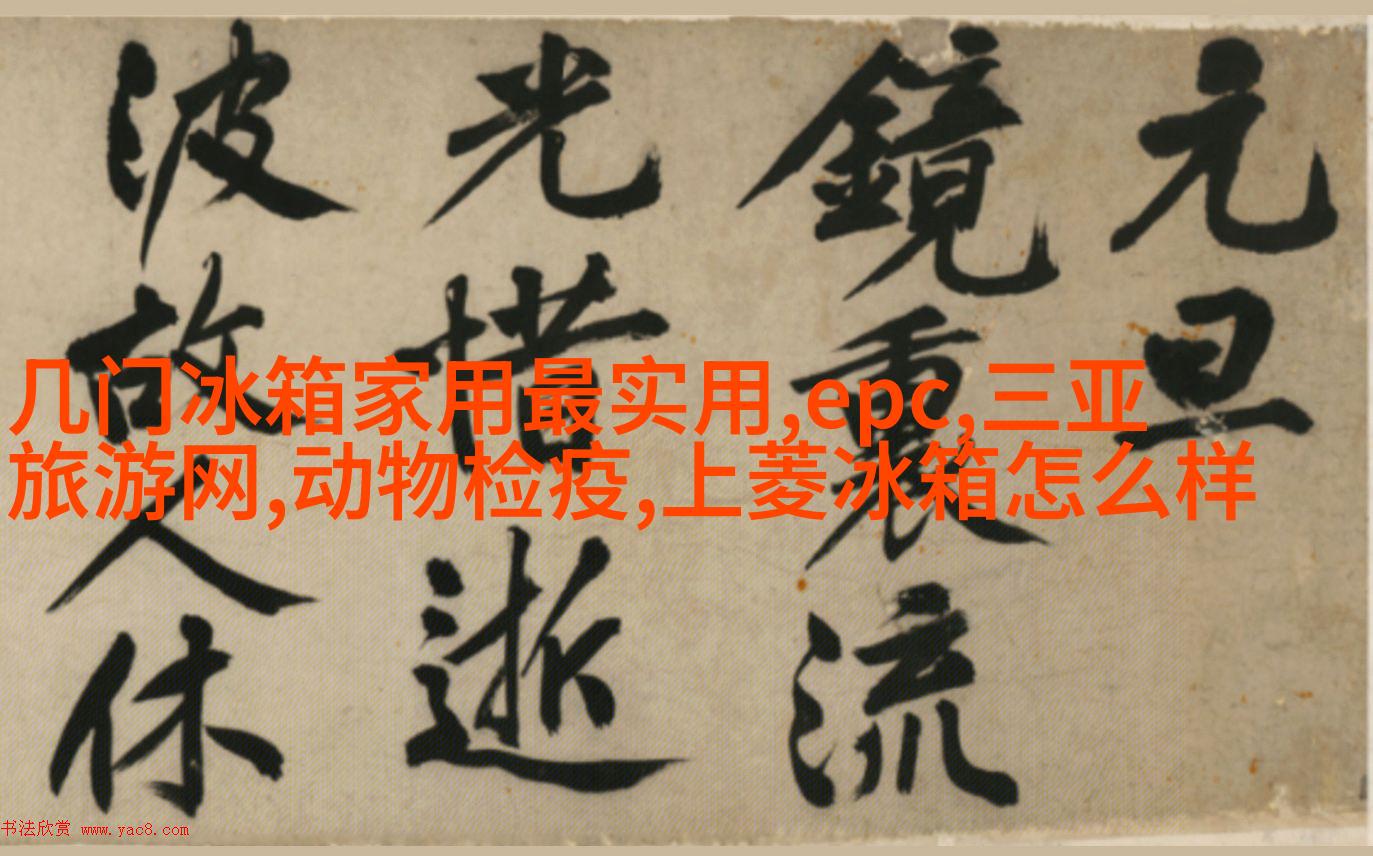 元旦
鏡裏流
光惜逝
波故人休
几门冰箱家用最实用,epc,三亚
旅游网,动物检疫,上菱冰箱怎么样
书法欣赏 www.yac8.com